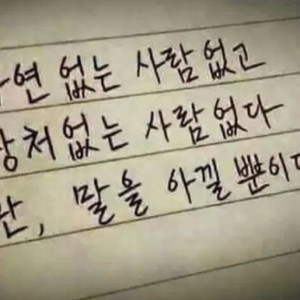 사연 없는 사람 없고
상처없는 사람 없다
말을 아낄 뿐이다